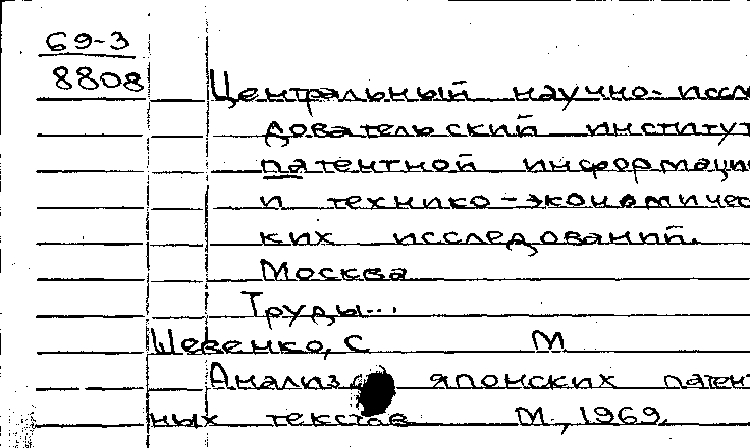 69-3
8808
Центральный научно-иссле
довательский институт
патентной информации
и технико-экономичес
ких исследований.
Москва
Труды...
Шевенко, С М
Анализ японских патент
ных текстов М., 1969.